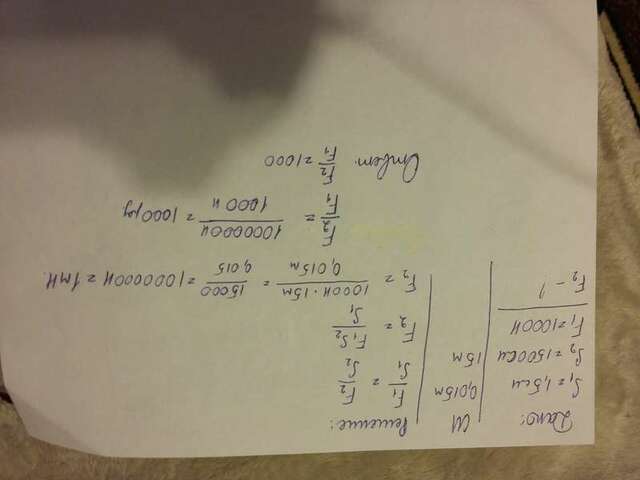 Дано:
S₁ = 1,5 см
S₂ = 1500 см
F₁ = 1000 Н
F₂ - ?
СИ
0,015 м
15 м
Решение:
F₁/S₁ = F₂/S₂
F₂ = F₁S₂/S₁
F₂ = 1000Н · 15м / 0,015м = 15000/0,015 = 1000000Н = 1мН.
F₂/F₁ = 1000000Н/1000Н = 1000 рд
Ответ. F₂/F₁ = 1000